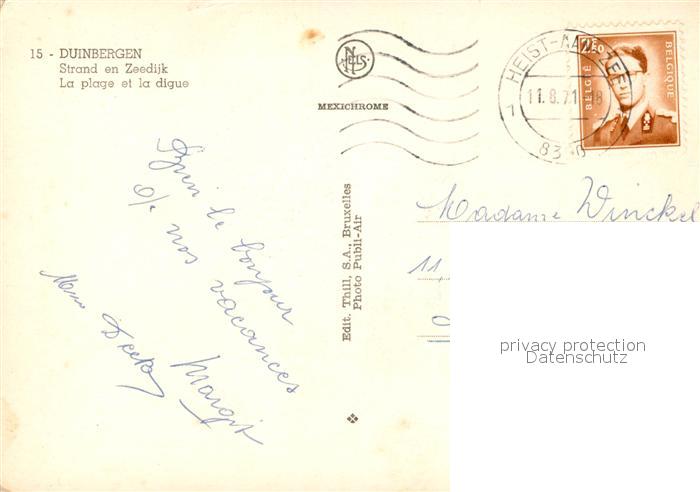 15 - DUINBERGEN
Strand en Zeedijk
La plage et la digue
NELS
MEXICHROME
HEIST-AAN-ZEE
11.8.71
1
BELGIË
BELGIQUE
le bonjour
de nos vacances
Margit
Edit. Thill, S.A., Bruxelles
Photo Publi-Air
Madame Winckel
11
privacy protection
Datenschutz